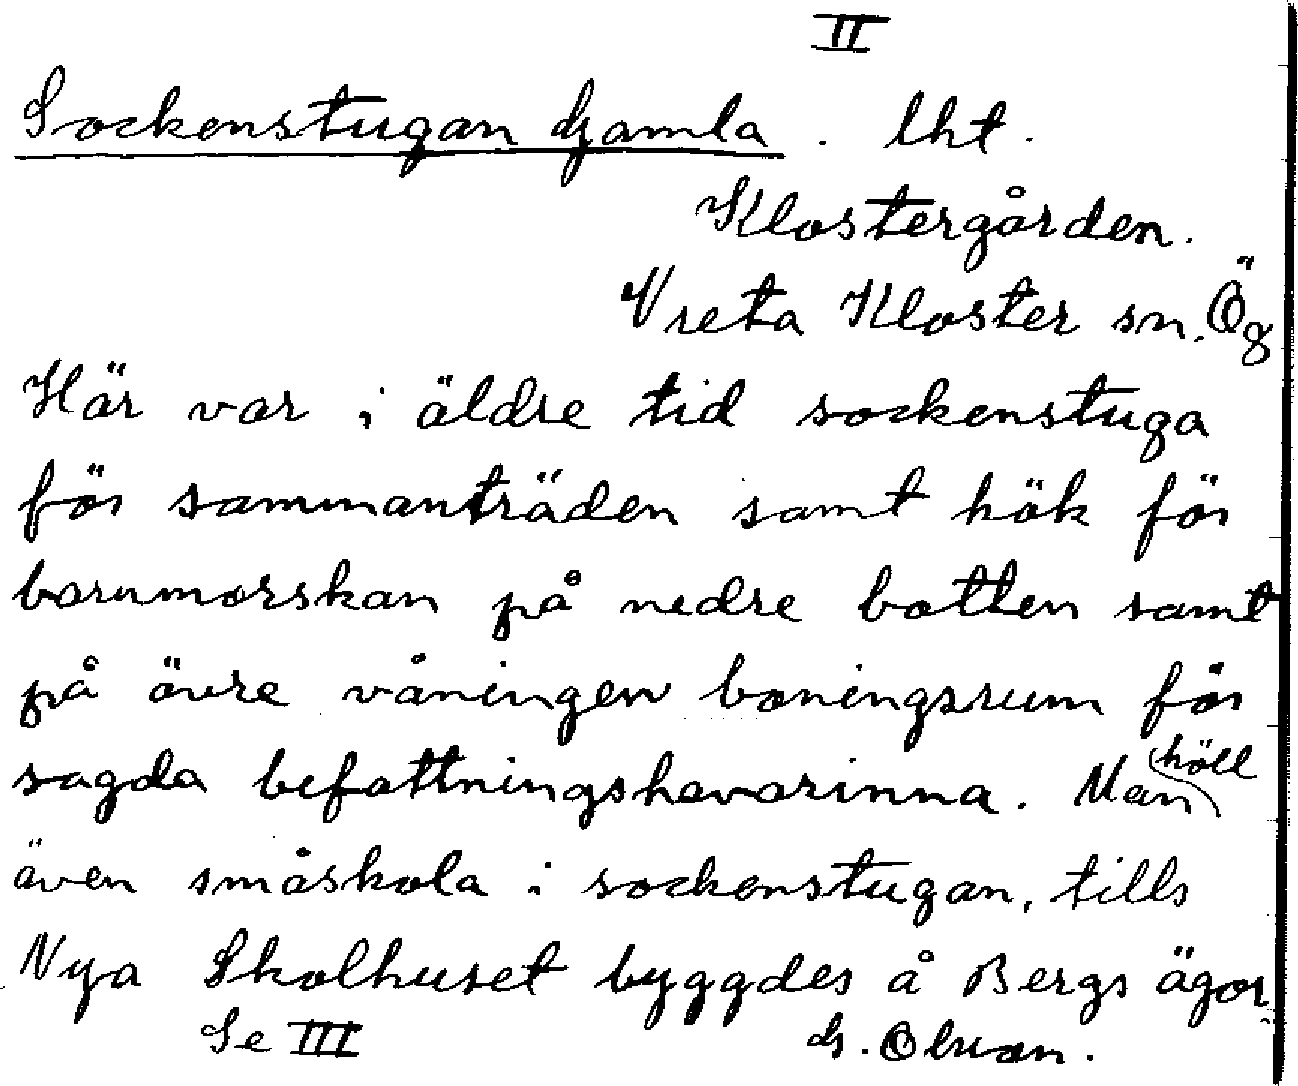 II
Sockenstugan Gamla. lht.
Klostergården.
Vreta Kloster sn. Ög
Här var i äldre tid sockenstuga
för sammanträden samt kök för
barnmorskan på nedre botten samt
på övre våningen boningsrum för
sagda befattningshavarinna. Man höll
även småskola i sockenstugan, tills
Nya Skolhuset byggdes å Bergs ägor.
Se III G. Olsson.